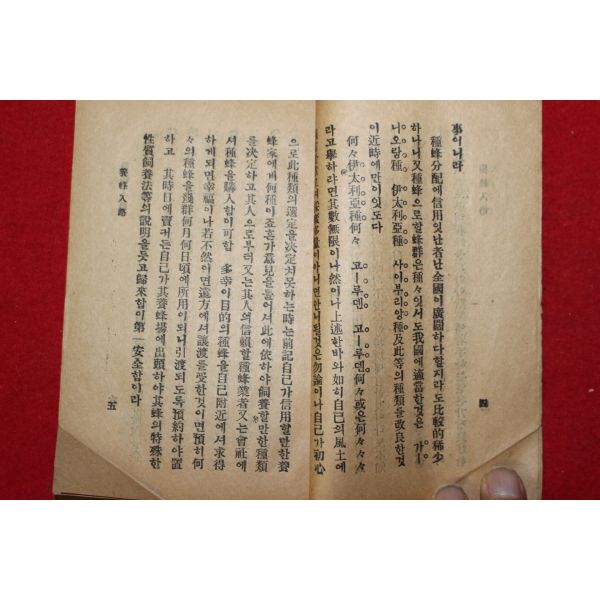 事이니라
種蜂分配에信用잇난者난全國이廣闊하다할지라도比較的稀少
하나니又種蜂으로할蜂群은種々잇서도我國에適當한것은 가ー
니오랑種 伊太利亞種 사이부리앙種及此等의種類를改良한것
이近時에만이잇도다
何々伊太利亞種何々 고ー루덴 고ー루덴何々或은何々々
라고擧하랴면其數無限이나然이나上述한바와如히自己의風土에
아니면안니될것은勿論이나自己가初心
으로此種類의選定을決定치못하는時는前記自己가信用할만한養
蜂家에게何種이죠흔가意見을들어셔此에依하야飼養할만한種類
를決定하고其人으로부터又는其人의信賴할種蜂業者又는會社에
셔種蜂을購入함이可함 多幸이目的의種蜂을自己附近에셔求得
하게되면幸福이나若不然이면遠方에셔讓渡를受한것이면預히何
々의種蜂을幾群何月何日頃에所用이되니引渡되도록預約하야置
하고 其時日에賣者든가其養蜂場에出頭하야其蜂의特殊한
性質飼養法等의說明을듯고歸來함이第一安全함이라
養蜂入路
五
四